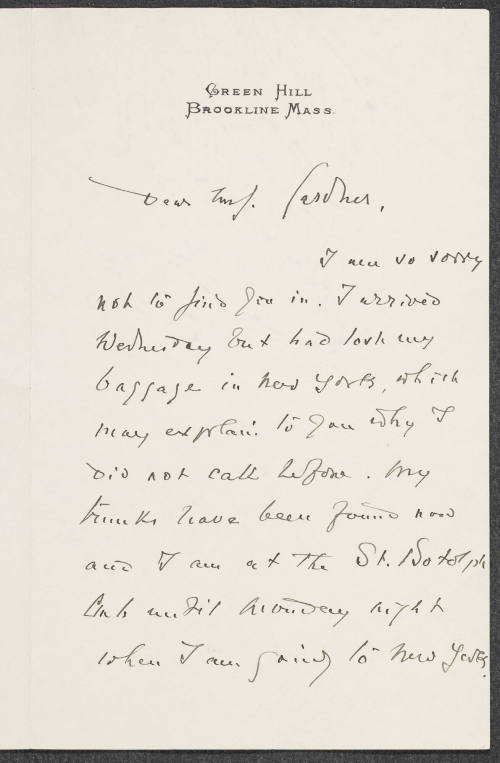 GREEN HILL
BROOKLINE MASS.
Dear Mrs. Gardner,
I am so sorry
not to find you in. I arrived
Wednesday but had lost my
baggage in New York, which
may explain to you why I
did not call before. My
trunks have been found now
and I am at the St. Botolph
Club until Monday night
when I am going to New York.